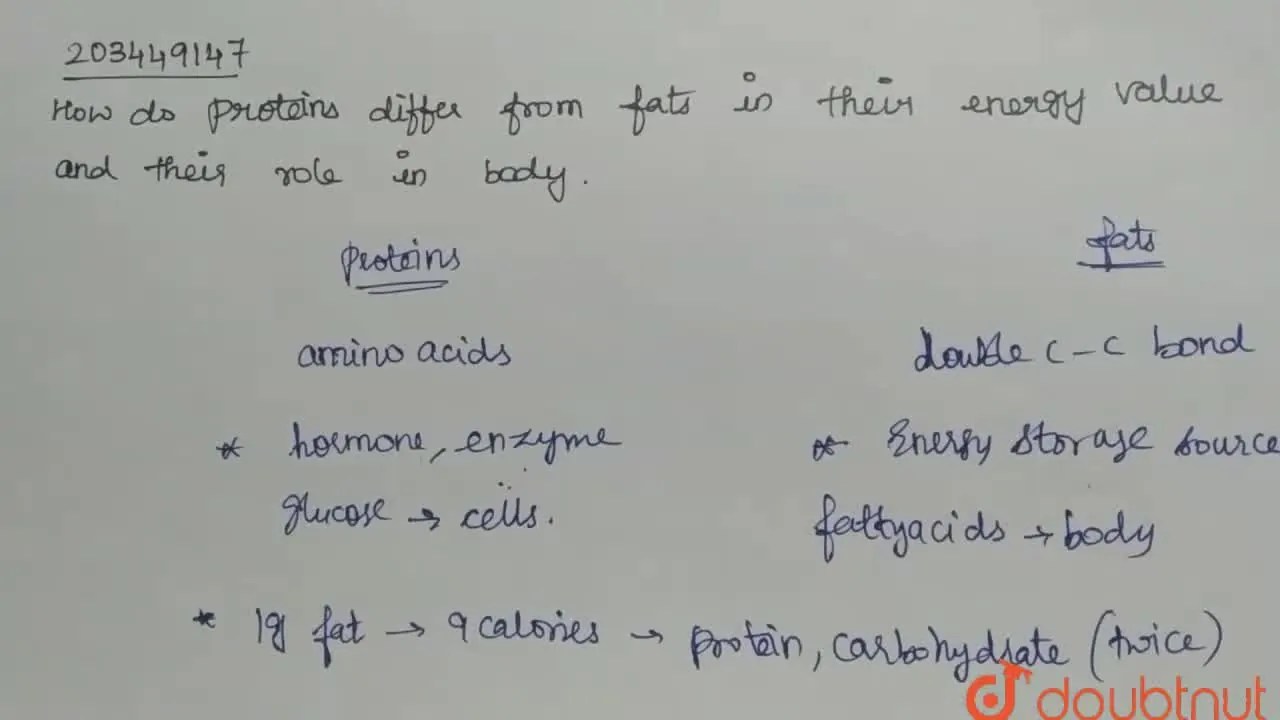 203449147
How do proteins differ from fats in their energy value
and their role in body.
proteins fats
amino acids double c-c bond
* hormone, enzyme * Energy storage source
glucose → cells. fattyacids → body
* 1g fat → 9 calories → protein, carbohydrate (twice)
doubtnut